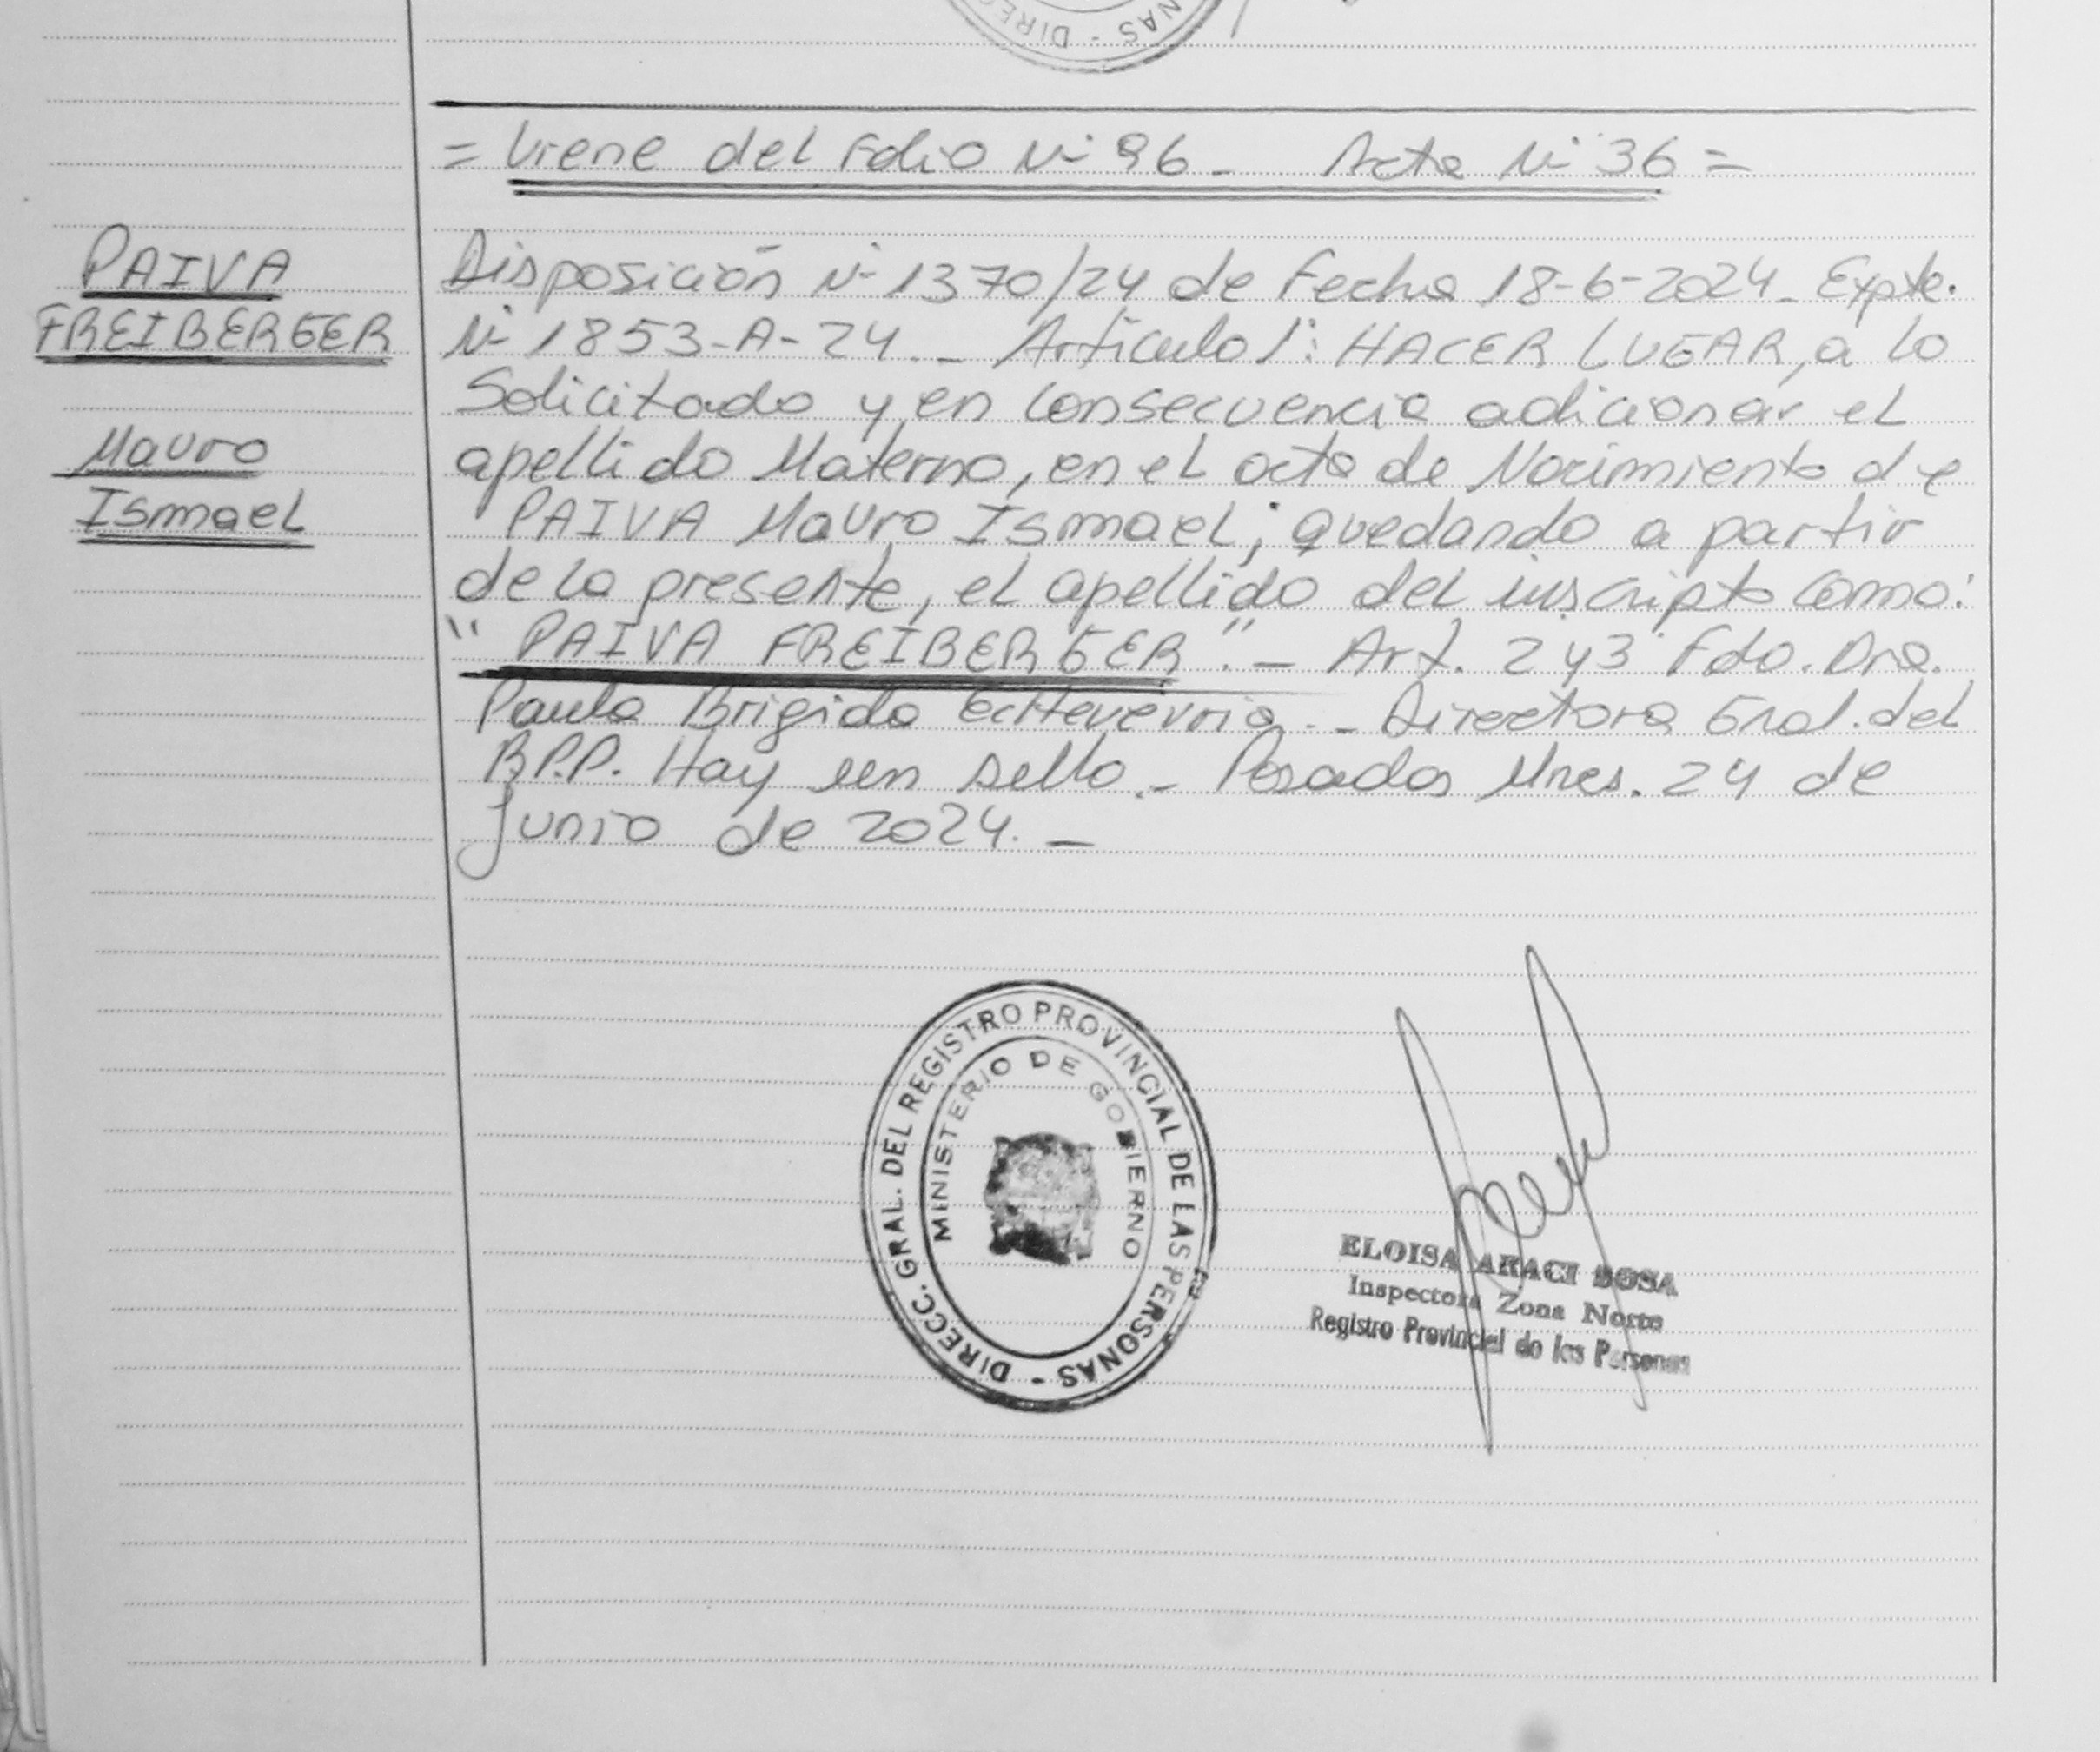 DIRECC. PERSONAS -
= Viene del Folio Nº 96 - Acta Nº 36 =
PAIVA
FREIBERGER
Mauro
Ismael
Disposición Nº 1370/24 de Fecha 18-6-2024 - Expte.
Nº 1853-A-24 . - Artículo 1º: HACER LUGAR, a lo
Solicitado y, en consecuencia adicionar el
apellido Materno, en el acta de Nacimiento de
PAIVA Mauro Ismael; quedando a partir
de la presente, el apellido del inscripto como:
"PAIVA FREIBERGER". - Art. 243 Fdo. Dra.
Paula Brigida Echeverria. - Directora Gral. del
R.P.P. Hay un sello. - Posadas Mnes. 24 de
Junio de 2024. -
DIRECC. GRAL. DEL REGISTRO PROVINCIAL DE LAS PERSONAS -
MINISTERIO DE GOBIERNO
ELOISA ARACI SOSA
Inspectora Zona Norte
Registro Provincial de las Personas